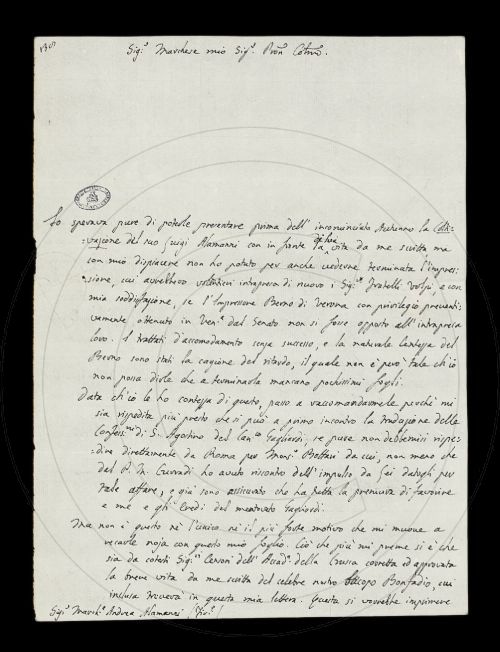 Sig.r Marchese mio Sig.r Pron Colmo.
Io sperava pure di poterle presentare prima dell' incominciato Autunno la Colti-
vazione del suo Luigi Alamanni con in fronte la di lui vita da me scritta ma
con mio dispiacere non ho potuto per anche vederne terminata l'impres-
sione, cui avrebbero volentieri intrapresa di nuovo i Sig.ri Fratelli Volpi, e con
mia soddisfazione, se l'Impressore Berno di Verona con privilegio preventi-
vamente ottenuto in Ven.a dal Senato non si fosse opposto all' intrapresa
loro. I trattati d'accomodamento senza successo, e la naturale lentezza del
Berno sono stati la cagione del ritardo, il quale non è però tale ch'io
non possa dirle che a terminarla mancano pochissimi fogli.
Data ch'io le ho contezza di questo, passo a raccomandarmele perchè mi
sia rispedita più presto che si può a primo incontro la traduzione delle
Confess.ni di S. Agostino del Can.co Gagliardi, se pure non debbemisi rispe-
dire direttamente da Roma per Mons.r Bottari da cui, non meno che
dal P. M. ho avuto riscontro dell' impulso da Lei datogli per
tale affare, e già sono assicurato che ha tutta la premura di favorire
e me e gli Eredi del mentovato Gagliardi.
Ma non è questo nè l'unico nè il più forte motivo che mi muove a
recarle noja con questo mio foglio. Ciò che più mi preme si è che
sia da cotesti Sig.ri Censori dell' Accad.a della Crusca corretta ed approvata
la breve vita da me scritta del celebre nostro Jacopo Bonfadio, cui
inclusa troverà in questa mia lettera. Questa si vorrebbe imprimere
Sig.r March.e Andrea Alamanni